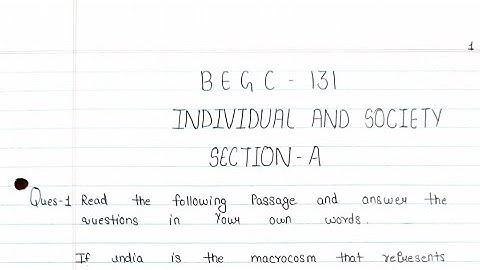 1
BEGC - 131
INDIVIDUAL AND SOCIETY
SECTION - A
Ques-1 Read the following Passage and answer the
questions in Your own words.
If india is the macrocosm that represents